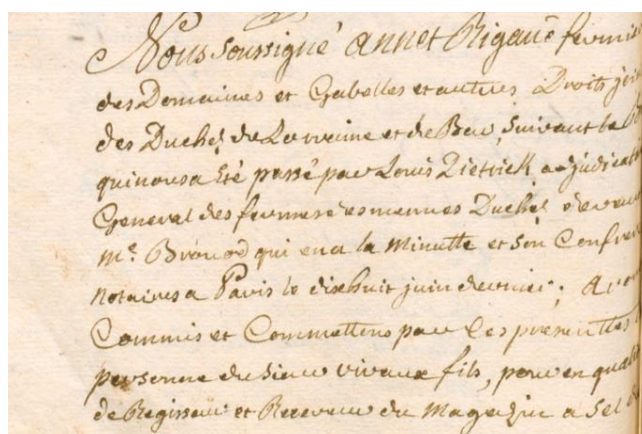 Nous soussigné annet Rigaud fermie
des Domaines et Gabelles et autres Droits join
des Duchés de Lorraine et de Bar, suivant le
qui nous a été passé par Louis Dietrich adjudicat
General des fermes desmemes Duchés devant
Me. Bronod qui en a la minutte et son Confrere
notaires a Paris le dixhuit juin dernier; avo
Commis et Commettons par ces presenttes
personne du sieur vivaux fils, pour en quali
de Regisseur et Receveur du Magazin a Sel